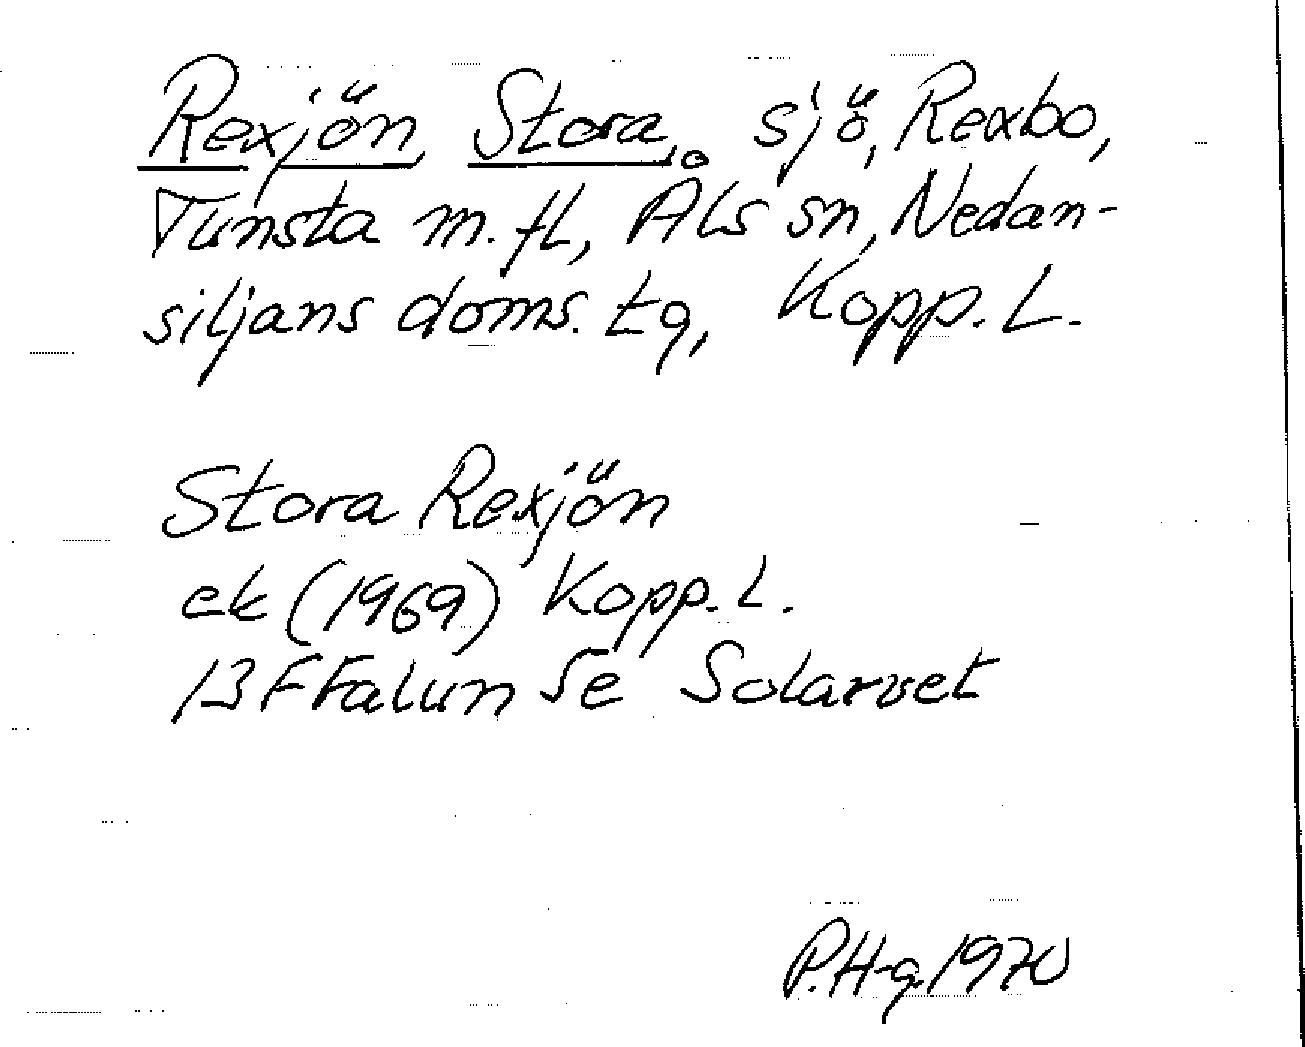 Rexjön, Stora, sjö, Rexbo,
Tunsta m. fl., Åls sn, Nedan-
siljans doms. tg, Kopp. L.
Stora Rexjön
ek (1969) Kopp. L.
13F Falun Se Solarvet
P. H-g. 1970